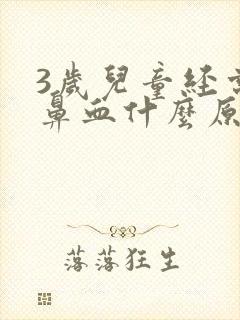 3歲兒童經
鼻血什麼原
落落狂生